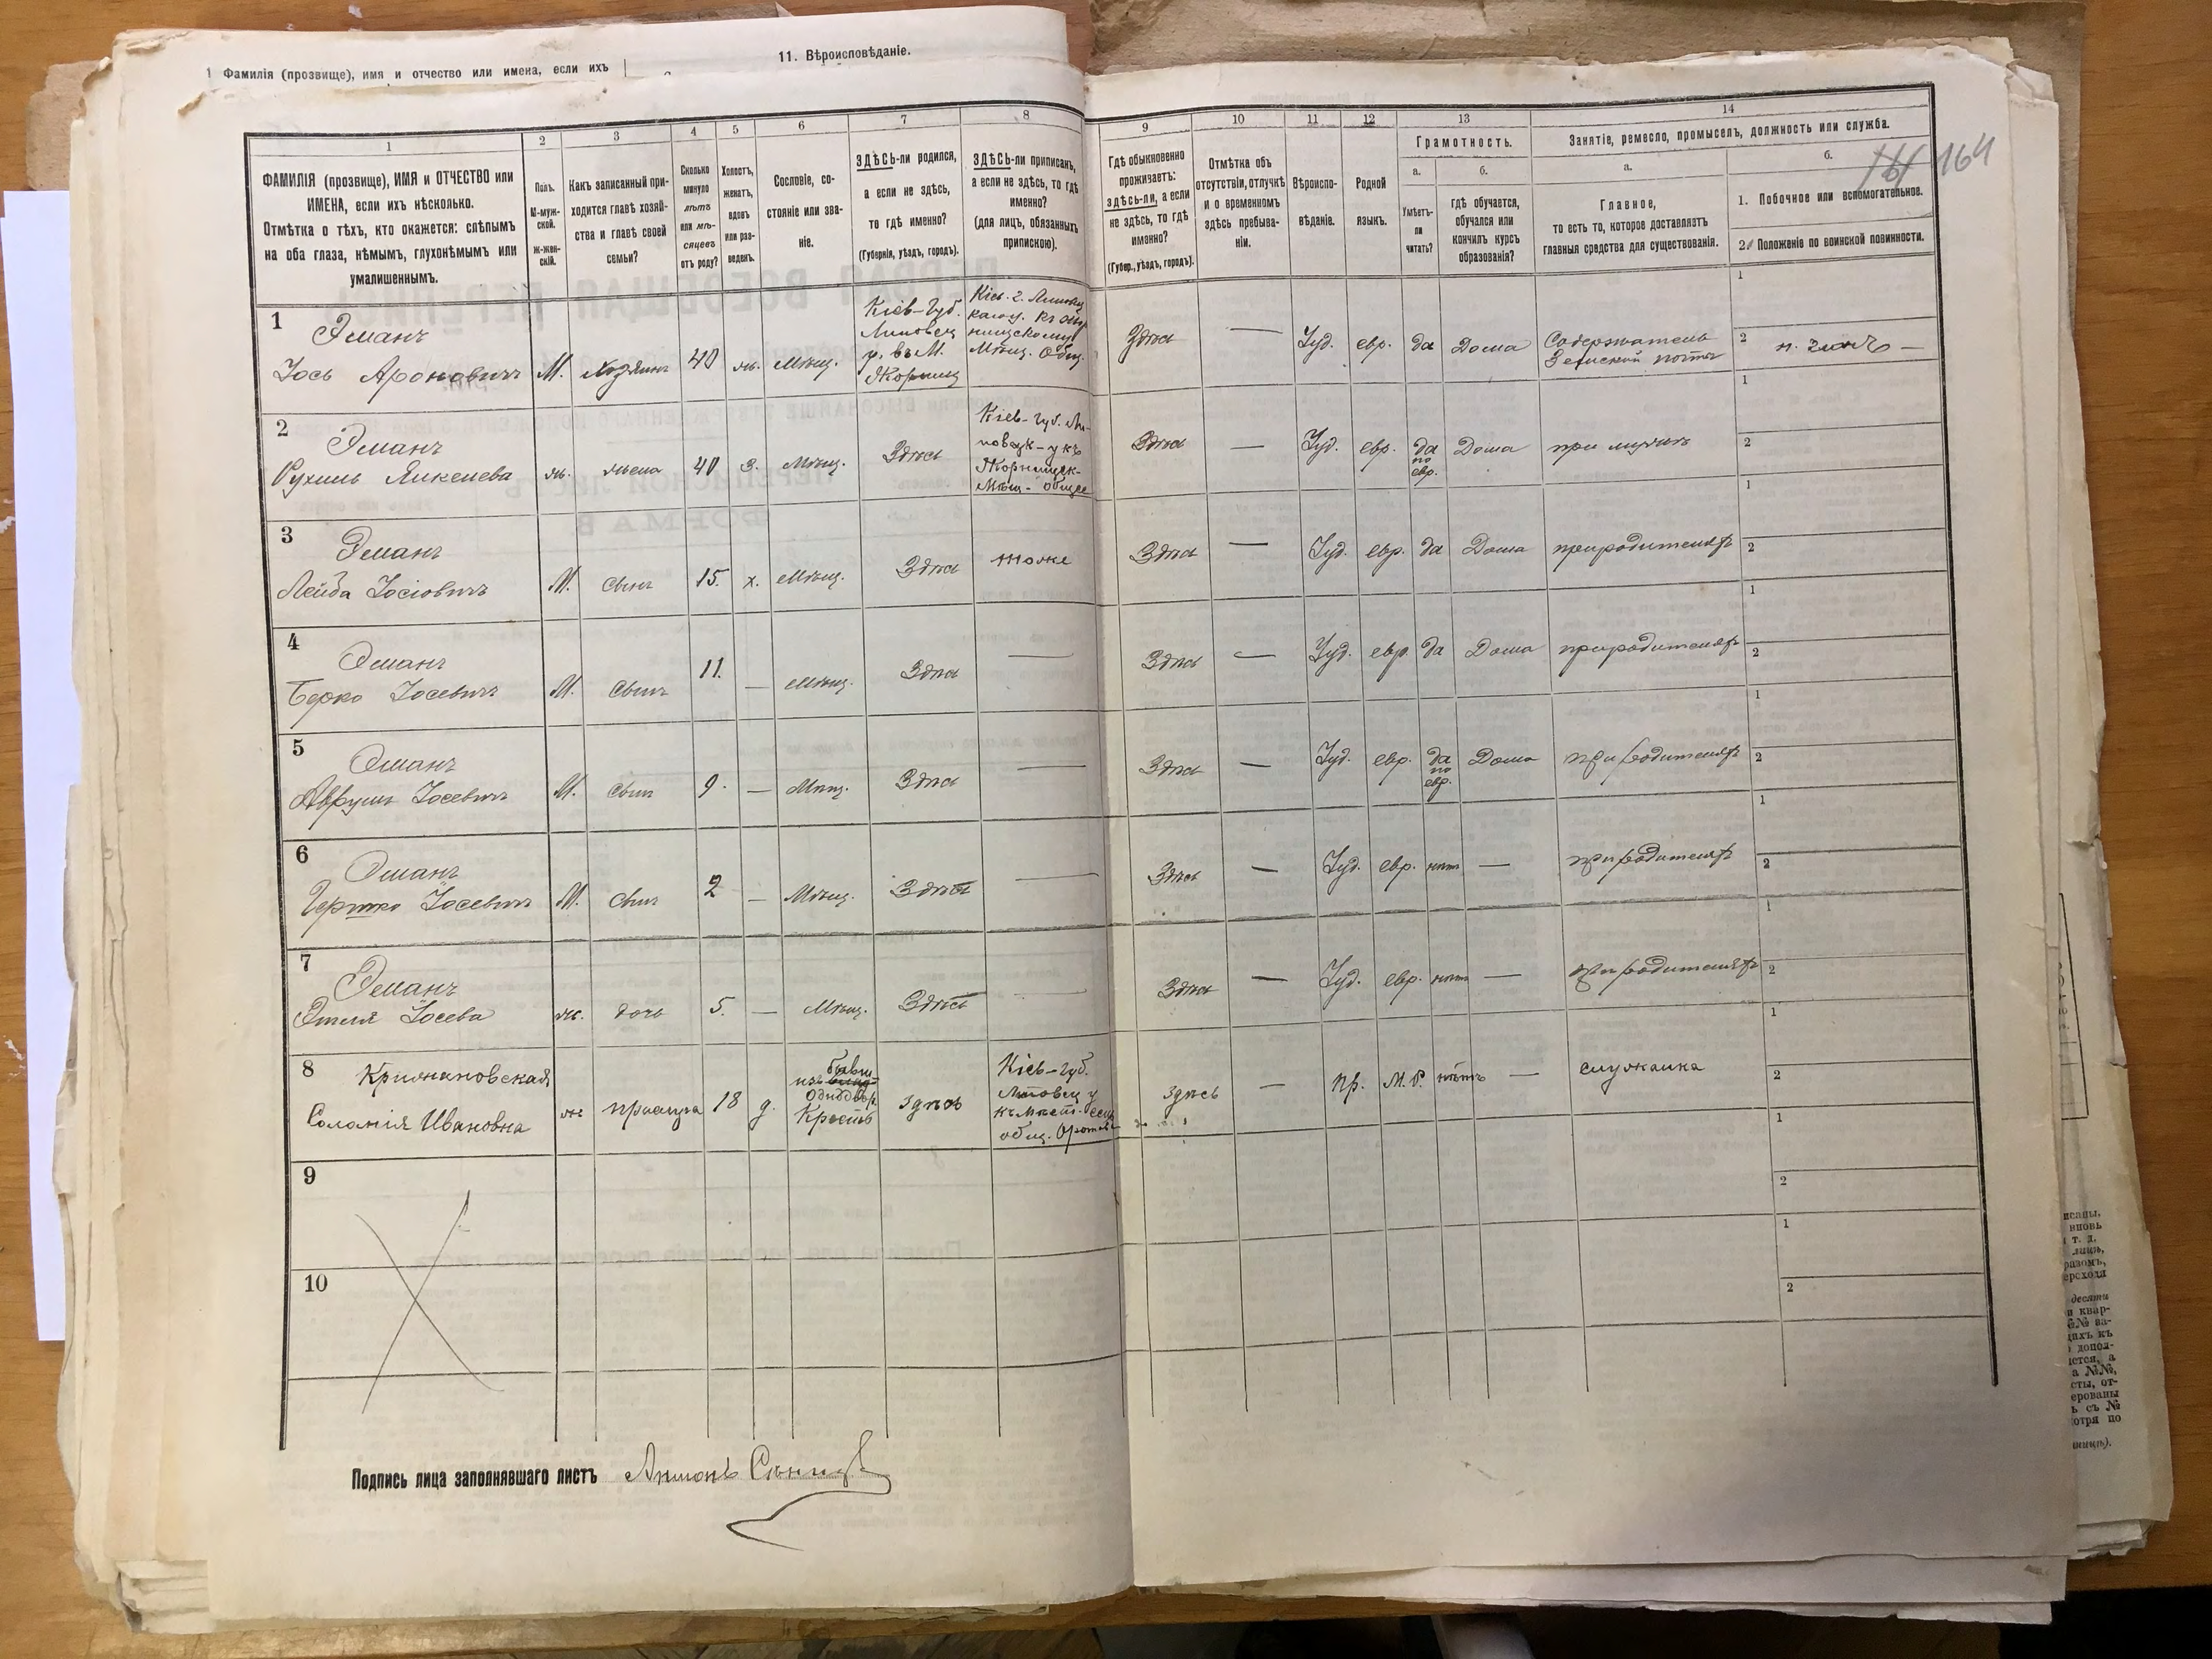 1 Фамилія (прозвище), имя и отчество или имена, если ихъ
11. Вѣроисповѣданіе.
161 164
1 2 3 4 5 6 7 8 9 10 11 12 13 14
ФАМИЛІЯ (прозвище), ИМЯ и ОТЧЕСТВО или
ИМЕНА, если ихъ нѣсколько.
Отмѣтка о тѣхъ, кто окажется: слѣпымъ
на оба глаза, нѣмымъ, глухонѣмымъ или
умалишеннымъ.
Полъ.
М-муж-
ской.
Ж-жен-
скій.
Какъ записанный при-
ходится главѣ хозяй-
ства и главѣ своей
семьи?
Сколько
минуло
лѣтъ
или мѣ-
сяцевъ
отъ роду?
Холостъ,
женатъ,
вдовъ
или раз-
веденъ.
Сословіе, со-
стояніе или зва-
ніе.
ЗДѢСЬ-ли родился,
а если не здѣсь,
то гдѣ именно?
(Губернія, уѣздъ, городъ).
ЗДѢСЬ-ли приписанъ,
а если не здѣсь, то гдѣ
именно?
(для лицъ, обязанныхъ
припискою).
Гдѣ обыкновенно
проживаетъ:
здѣсь-ли, а если
не здѣсь, то гдѣ
именно?
(Губер., уѣздъ, городъ).
Отмѣтка объ
отсутствіи, отлучкѣ
и о временномъ
здѣсь пребыва-
ніи.
Вѣроиспо-
вѣданіе.
Родной
языкъ.
Грамотность.
а.
Умѣетъ-
ли
читать?
б.
гдѣ обучается,
обучался или
кончилъ курсъ
образованія?
Занятіе, ремесло, промыселъ, должность или служба.
а.
Главное,
то есть то, которое доставляетъ
главныя средства для существованія.
б.
1. Побочное или вспомогательное.
2. Положеніе по воинской повинности.
1 Эманъ
Іось Ароновичъ М. хозяинъ 40 ж. Мѣщ.
Кіев-Губ.
Липовец
у. въ М.
Жорнищ
Кіев. г. Липовец
Мѣщ. Общ.
Здѣсь — Іуд. евр. да Дома
Содержатель
Земской почты
1
2
2 Эманъ
Рухиль Янкелева ж. жена 40 з. Мѣщ. Здѣсь
Кіев-Губ. Ли-
повецк-у къ
Жорнищск-
Мѣщ- общес
Здѣсь — Іуд. евр. да
по
евр. Дома при мужѣ
1
2
3 Эманъ
Лейба Іосіовичъ М. Сынъ 15. х. Мѣщ. Здѣсь тоже Здѣсь — Іуд. евр. да Дома при родителяхъ
1
2
4 Эманъ
Берко Іосевичъ М. Сынъ 11. — Мѣщ. Здѣсь — Здѣсь — Іуд. евр. да Дома при родителяхъ
1
2
5 Эманъ
Аврумъ Іосевичъ М. Сынъ 9. — Мѣщ. Здѣсь — Здѣсь — Іуд. евр. да
по
евр. Дома при родителяхъ
1
2
6 Эманъ
Гершко Іосевичъ М. Сынъ 2 — Мѣщ. Здѣсь — Здѣсь — Іуд. евр. нѣтъ — при родителяхъ
1
2
7 Эманъ
Этля Іосева ж. дочь 5. — Мѣщ. Здѣсь — Здѣсь — Іуд. евр. нѣтъ — при родителяхъ
1
2
8 Крижановская
Соломія Ивановна ж прислуга 18 д.
изъ бывш
Однодвор.
Крестъ
здѣсь
Кіев-Губ.
Липовец у
здѣсь — пр. М. Р. нѣтъ — служанка
1
2
9
1
2
10
1
2
Подпись лица заполнявшаго листъ Антонъ
исаны,
вновь
и т. д.
лицъ,
разомъ,
ерсходя
десяти
и квар-
№№ за-
дахъ къ
дапол-
ется, а
а №№,
сты, от-
ерованы
ь съ №
отря по